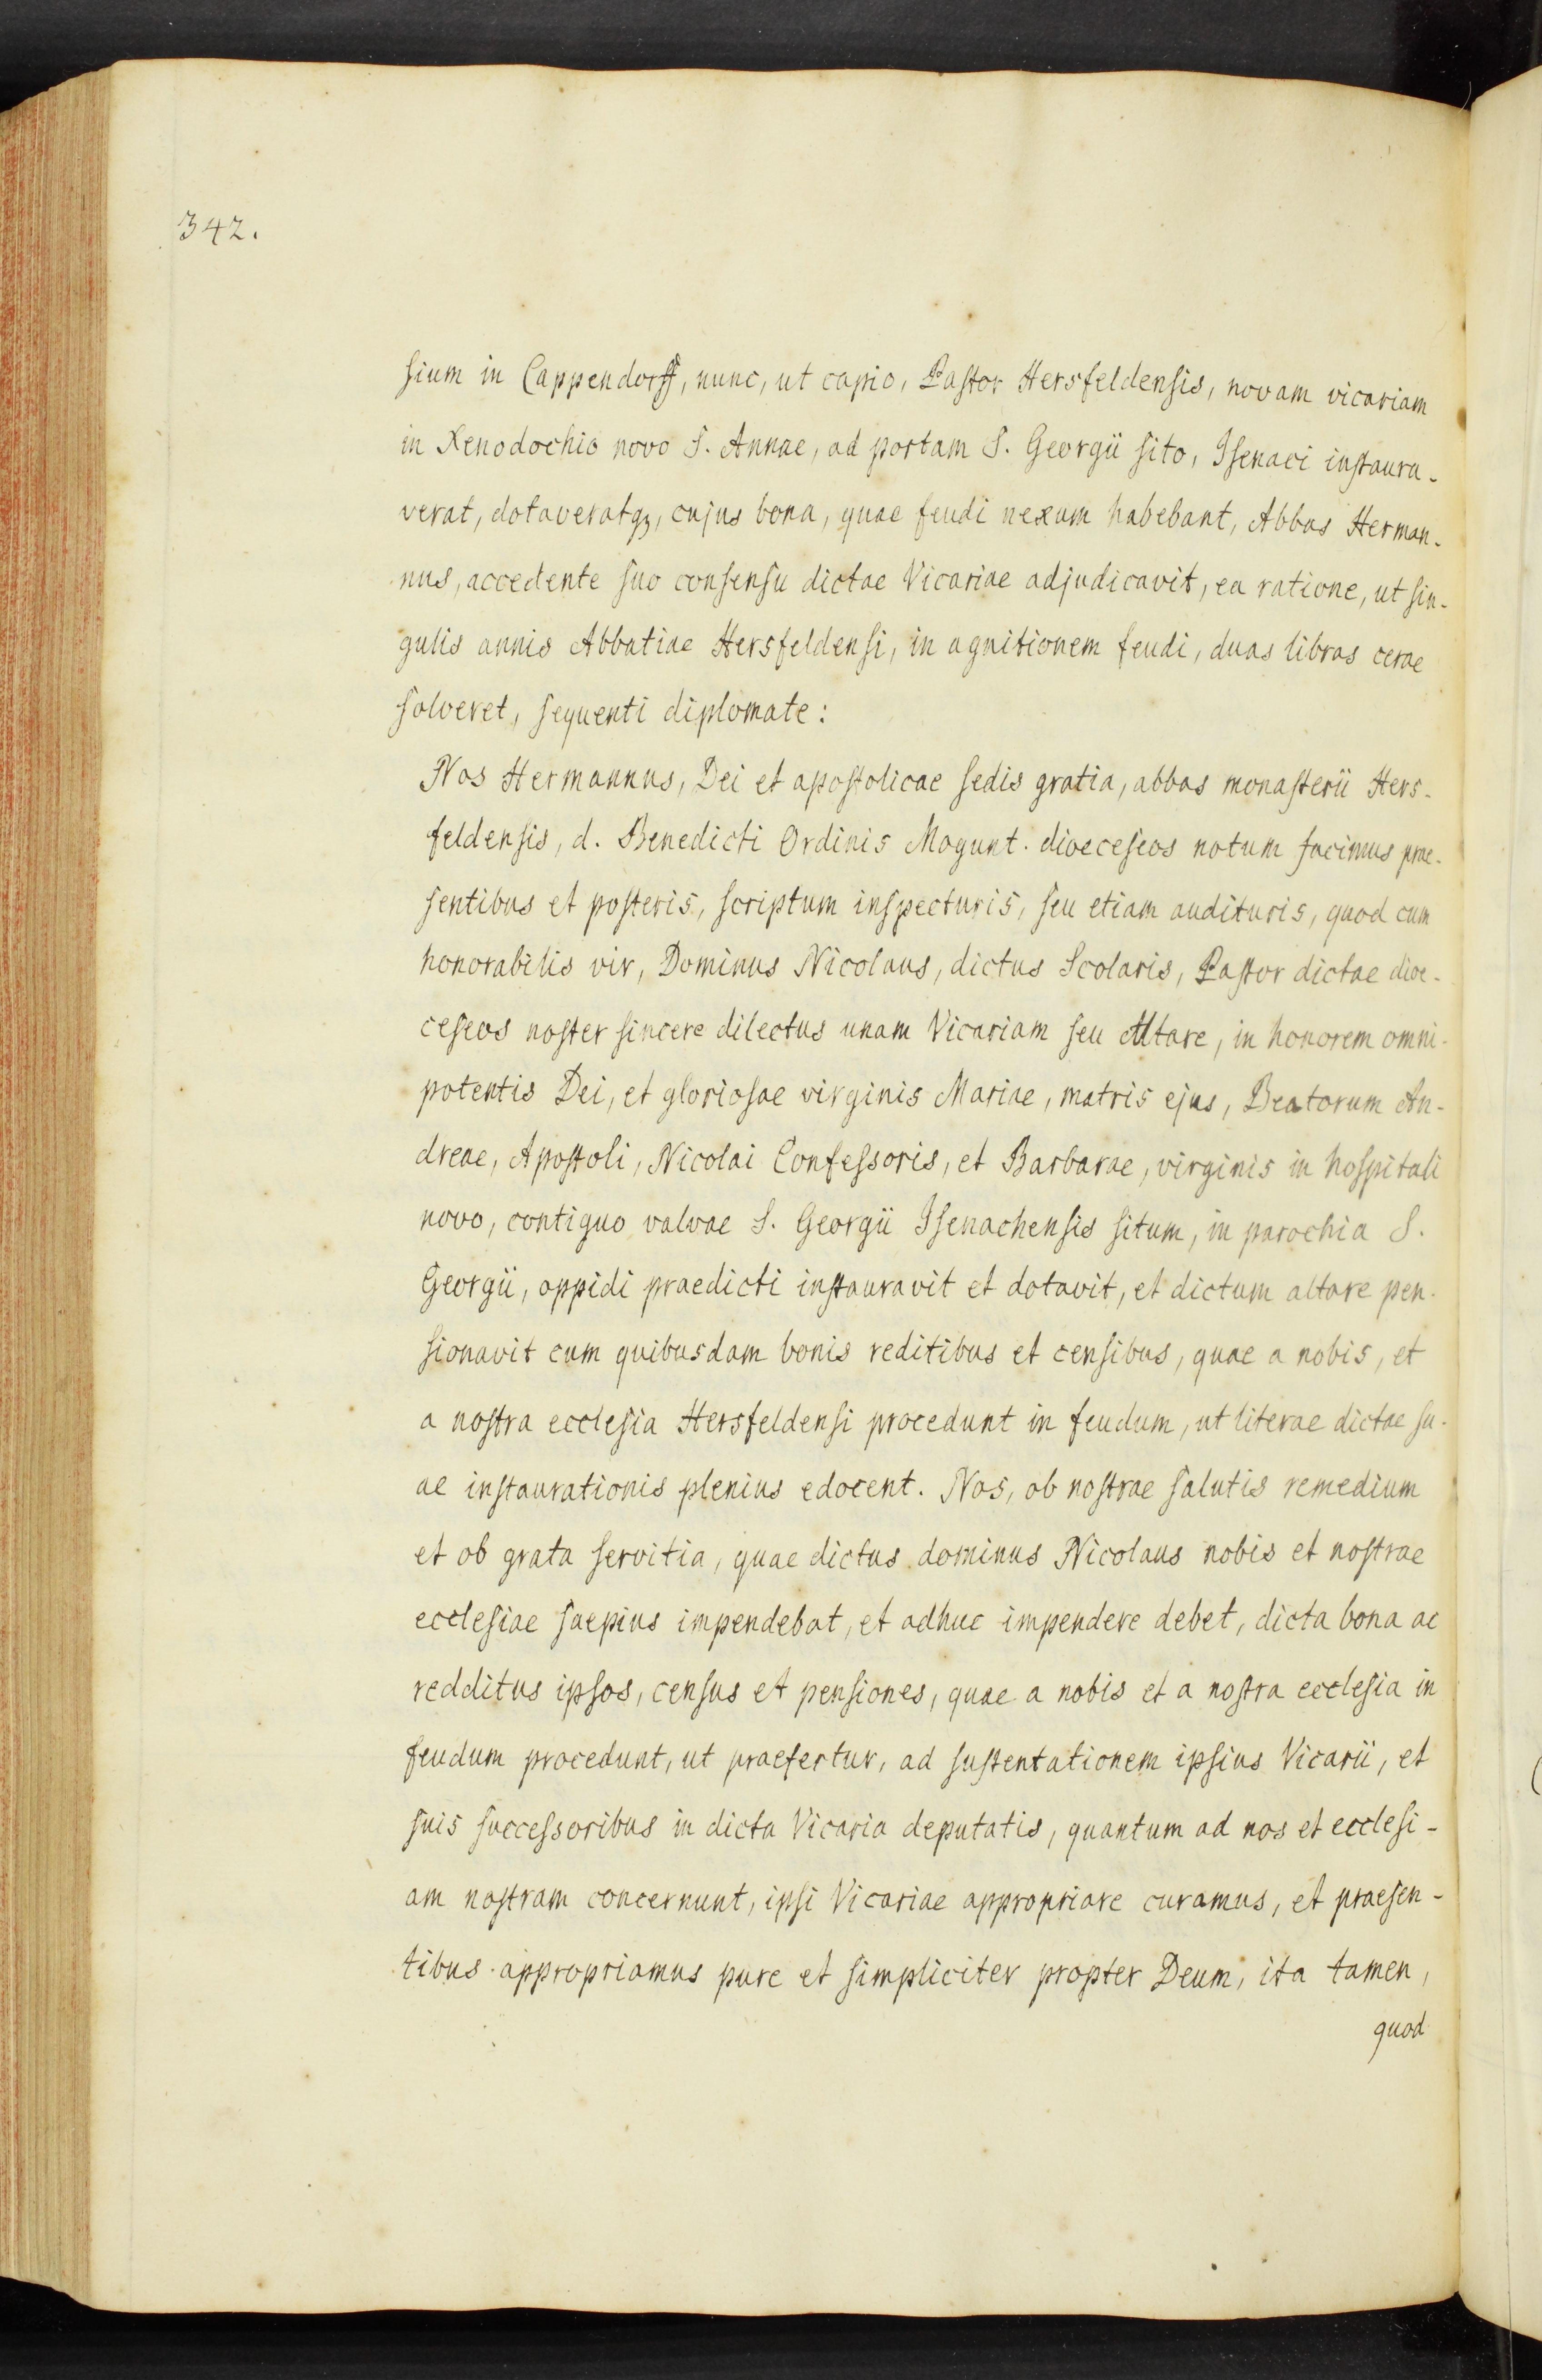 342.
sium in Cappendorff, nunc, ut capio, Pastor Hersfeldensis, novam vicariam
in Xenodochio novo S. Annae, ad portam S. Georgii sito, Isenaci instaura-
verat, dotaveratqȝ, cujus bona, quae feudi nexum habebant, Abbas Herman-
nus, accedente suo consensu dictae Vicariae adjudicavit, ea ratione, ut sin-
gulis annis Abbatiae Hersfeldensi, in agnitionem feudi, duas libras cerae
solveret, sequenti diplomate:
Nos Hermannus, Dei et apostolicae sedis gratia, abbas monasterii Hers-
feldensis, d. Benedicti Ordinis Mogunt. dioeceseos notum facimus prae-
sentibus et posteris, scriptum inspecturis, seu etiam audituris, quod cum
honorabilis vir, Dominus Nicolaus, dictus Scolaris, Pastor dictae dioe-
ceseos noster sincere dilectus unam Vicariam seu Altare, in honorem omni-
potentis Dei, et gloriosae virginis Mariae, matris ejus, Beatorum An-
dreae, Apostoli, Nicolai Confessoris, et Barbarae, virginis in hospitali
novo, contiguo valvae S. Georgii Isenachensis situm, in parochia S.
Georgii, oppidi praedicti instauravit et dotavit, et dictum altare pen-
sionavit cum quibusdam bonis reditibus et censibus, quae a nobis, et
a nostra ecclesia Hersfeldensi procedunt in feudum, ut literae dictae su-
ae instaurationis plenius edocent. Nos, ob nostrae salutis remedium
et ob grata servitia, quae dictus dominus Nicolaus nobis et nostrae
ecclesiae saepius impendebat, et adhuc impendere debet, dicta bona ac
redditus ipsos, census et pensiones, quae a nobis et a nostra ecclesia in
feudum procedunt, ut praefertur, ad sustentationem ipsius Vicarii, et
suis successoribus in dicta Vicaria deputatis, quantum ad nos et ecclesi-
am nostram concernunt, ipsi Vicariae appropriare curamus, et praesen-
tibus appropriamus pure et simpliciter propter Deum, ita tamen,
quod